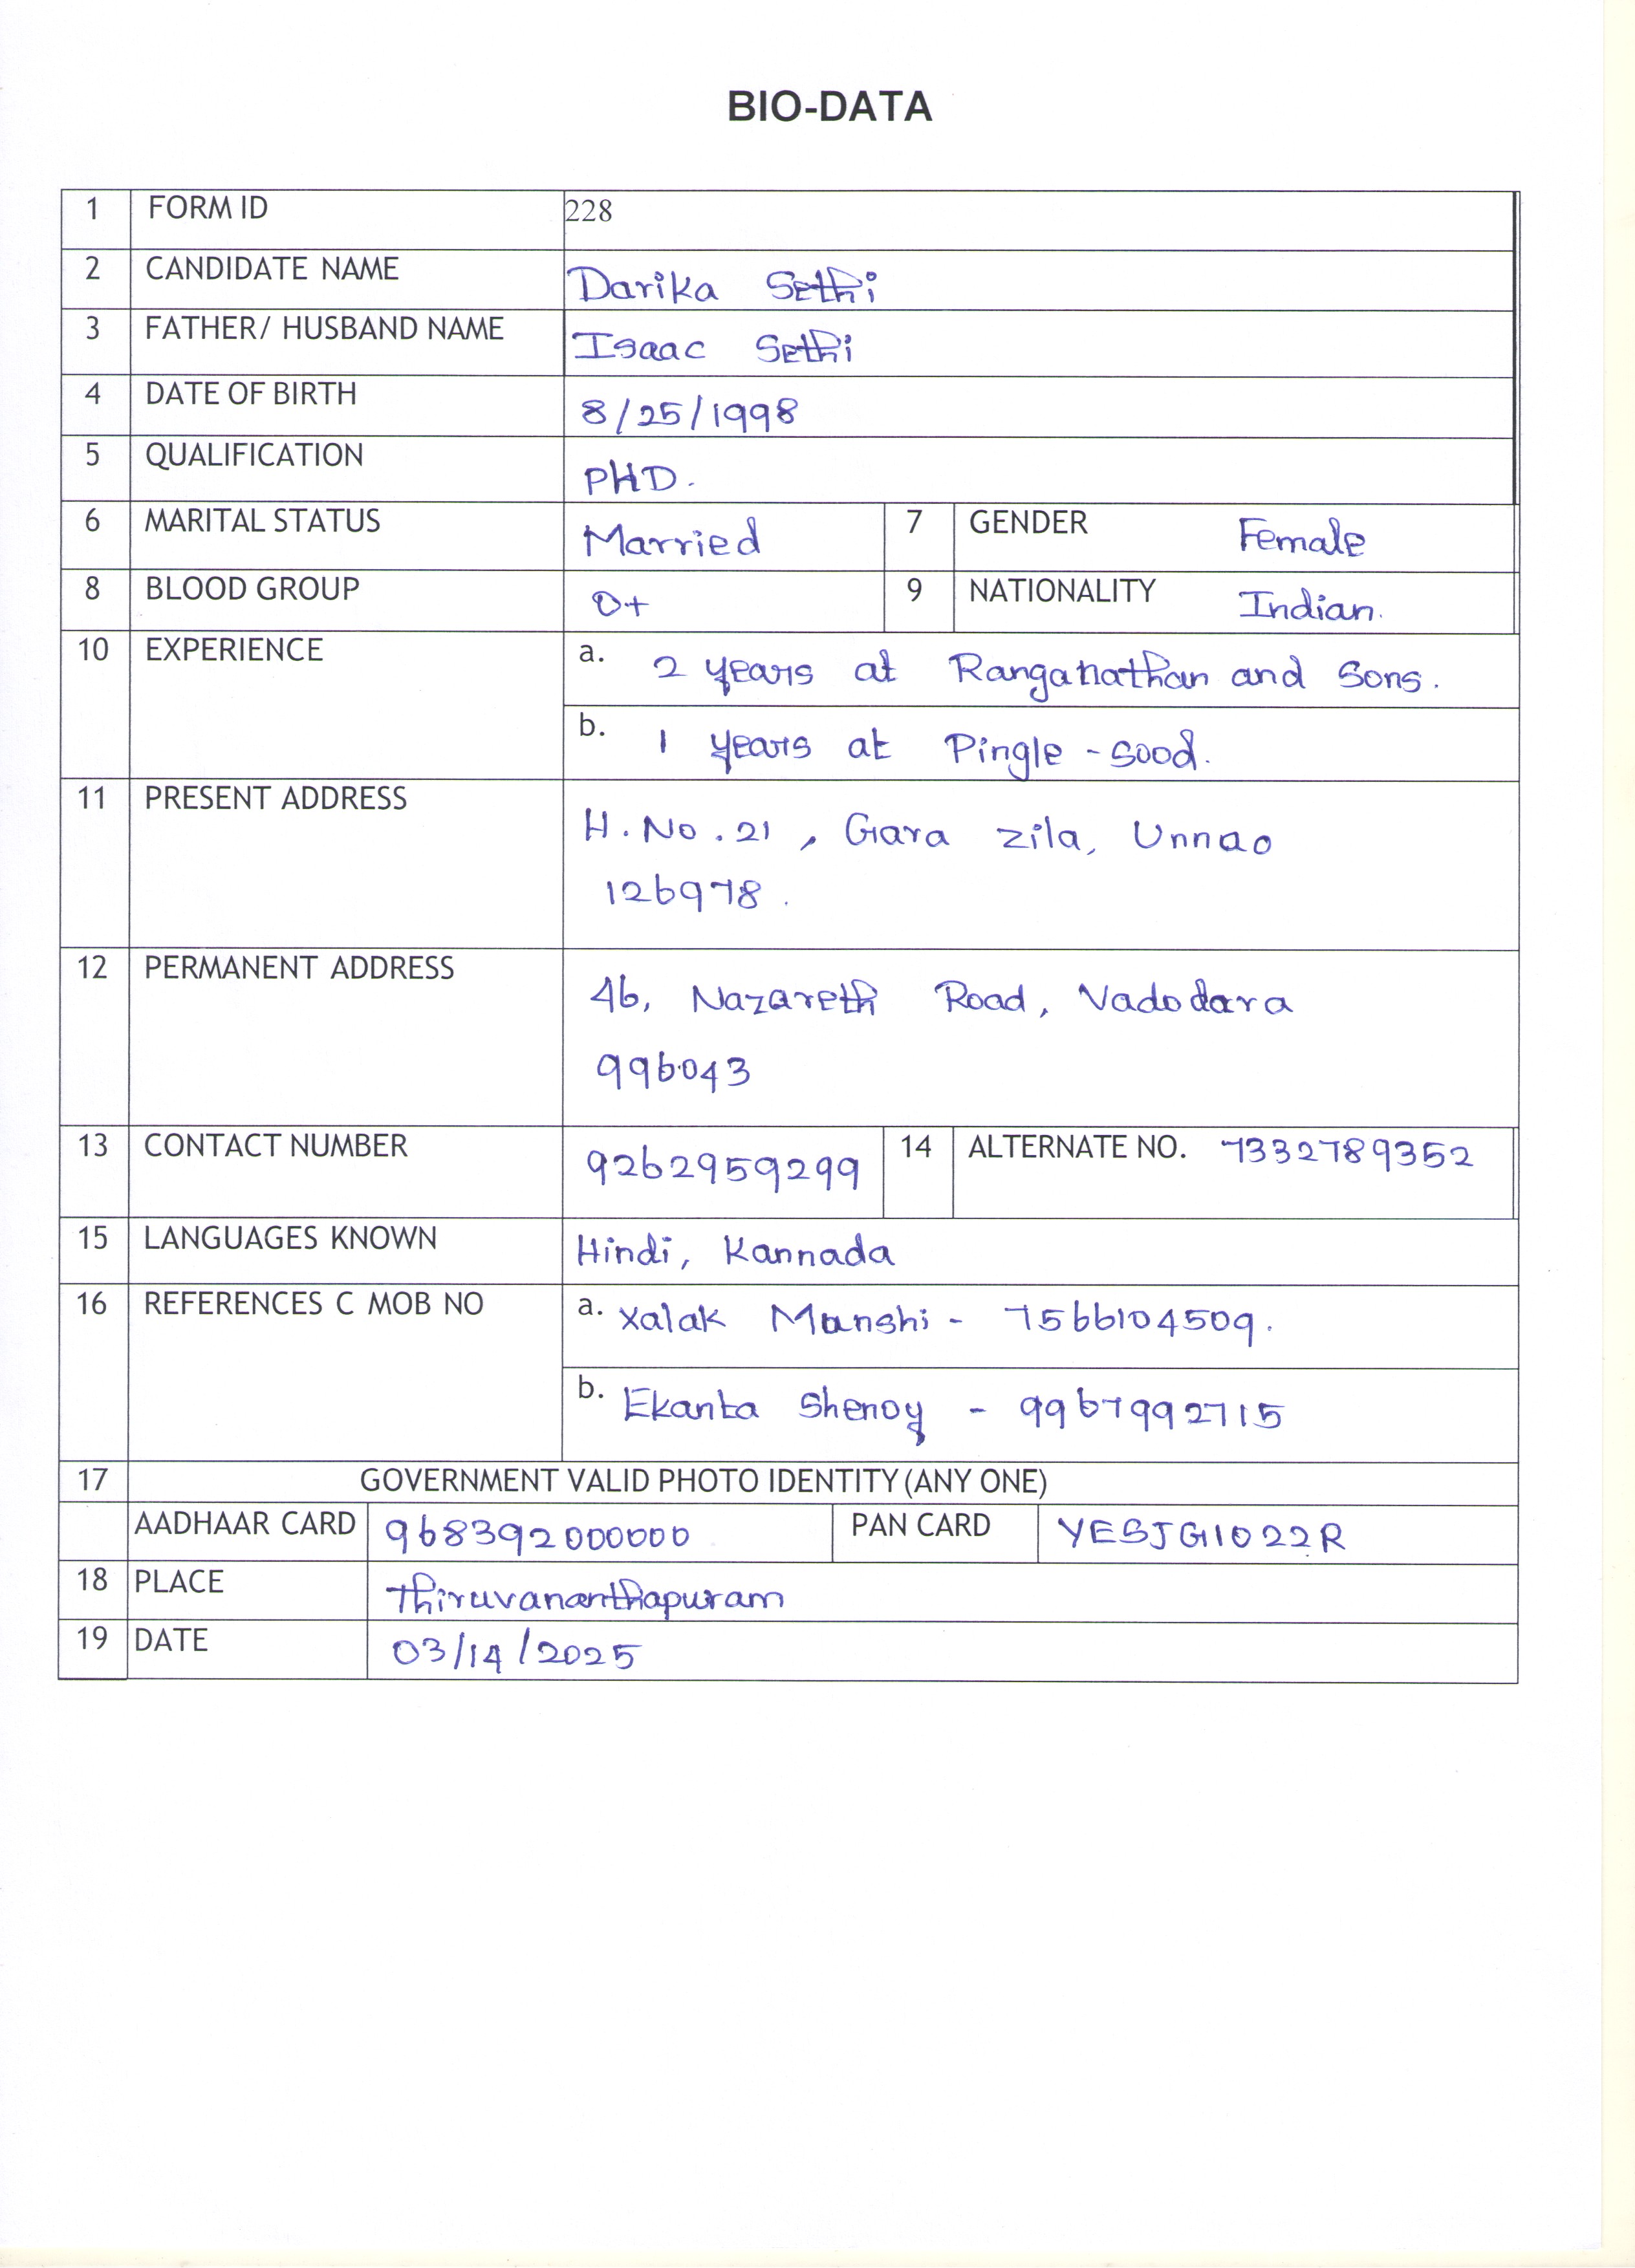 BIO-DATA
1 FORM ID 228
2 CANDIDATE NAME Darika Sethi
3 FATHER/ HUSBAND NAME Isaac Sethi
4 DATE OF BIRTH 8/25/1998
5 QUALIFICATION PHD.
6 MARITAL STATUS Married 7 GENDER Female
8 BLOOD GROUP O+ 9 NATIONALITY Indian.
10 EXPERIENCE a. 2 years at Ranganathan and Sons.
b. 1 years at Pingle - Sood.
11 PRESENT ADDRESS H. No. 21, Gara Zila, Unnao
126978.
12 PERMANENT ADDRESS 46, Nazareth Road, Vadodara
996043
13 CONTACT NUMBER 9262959299 14 ALTERNATE NO. 7332789352
15 LANGUAGES KNOWN Hindi, Kannada
16 REFERENCES C MOB NO a. Xalak Munshi - 7566104509.
b. Ekanta Shenoy - 9967992715
17 GOVERNMENT VALID PHOTO IDENTITY (ANY ONE)
AADHAAR CARD 968392000000 PAN CARD YESJG1022R
18 PLACE Thiruvananthapuram
19 DATE 03/14/2025